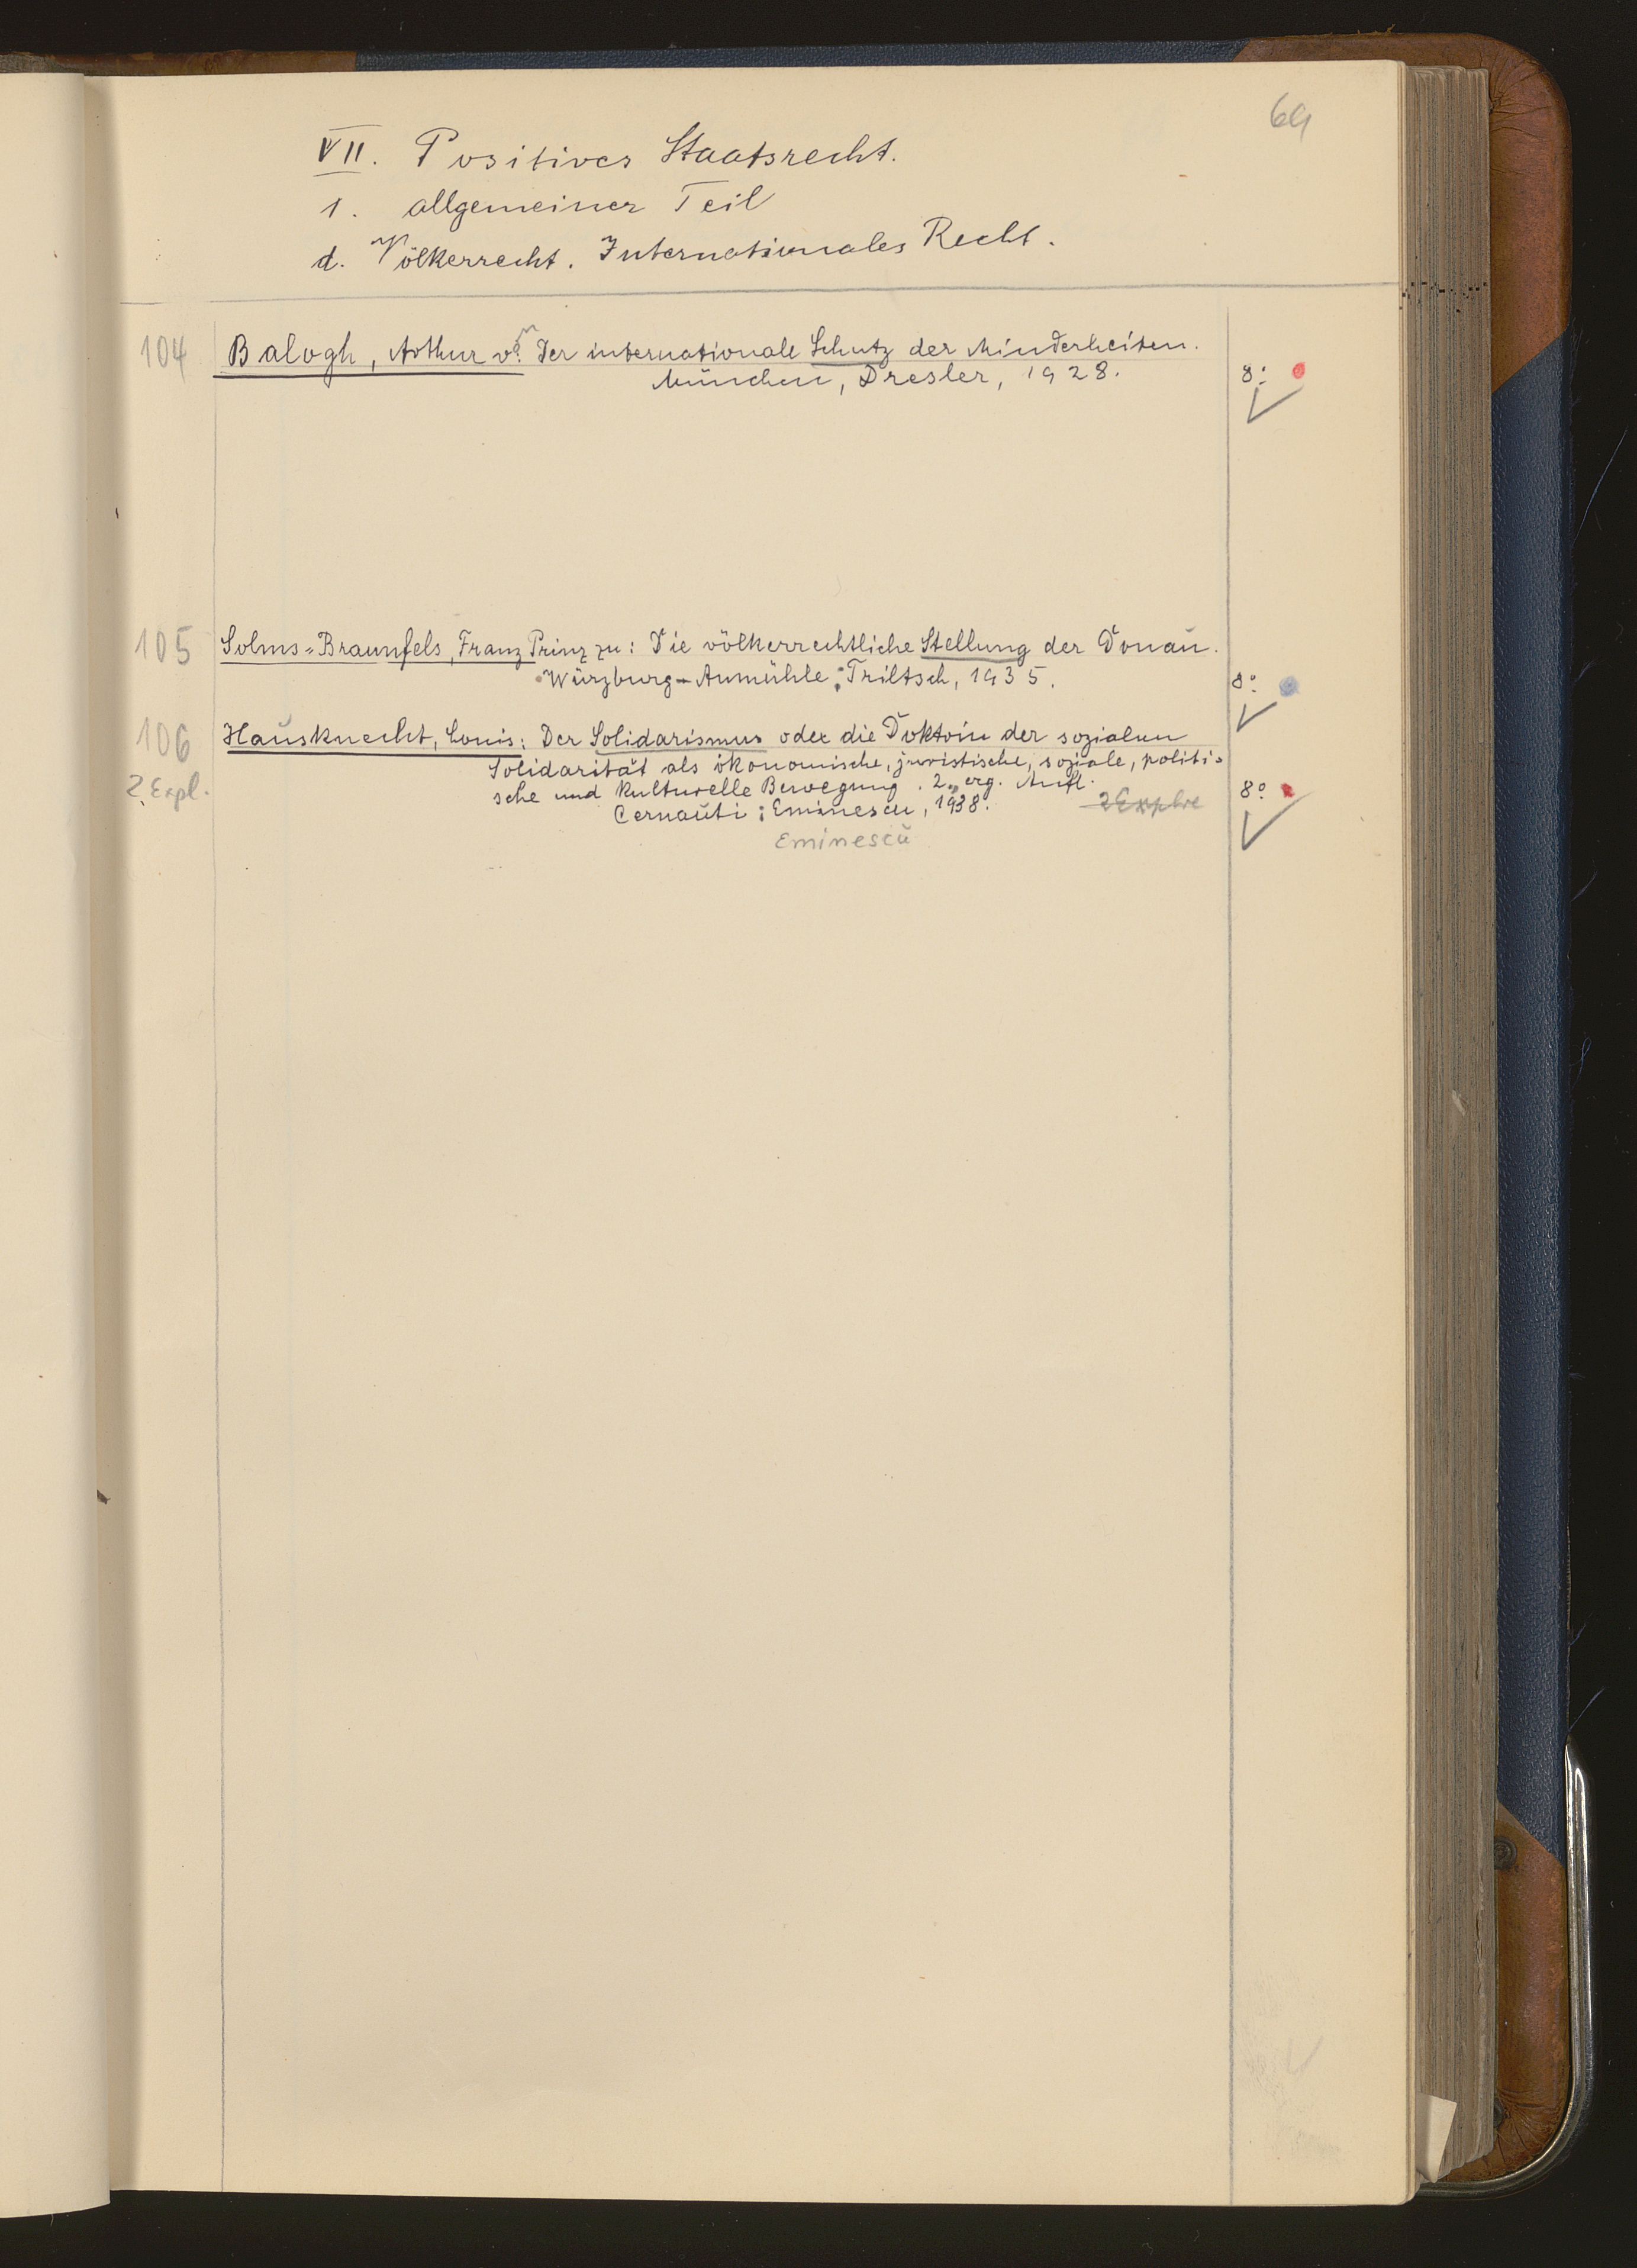 69
VII. Positives Staatsrecht.
1. allgemeiner Teil
d. Völkerrecht. Internationales Recht.
104 Balogh, Arthur v. Der internationale Schutz der Minderheiten.
München, Dresler, 1928. 8°
105 Solms-Braunfels, Franz Prinz zu: Die völkerrechtliche Stellung der Donau.
Würzburg-Aumühle: Triltsch, 1935. 8°
106 Hausknecht, Louis: Der Solidarismus oder die Doktrin der sozialen
Solidarität als ökonomische, juristische, soziale, politi-
2 Expl. sche und kulturelle Bewegung. 2., erg. Aufl. 8°
Cernauti: Eminescu, 1938.
Eminescu